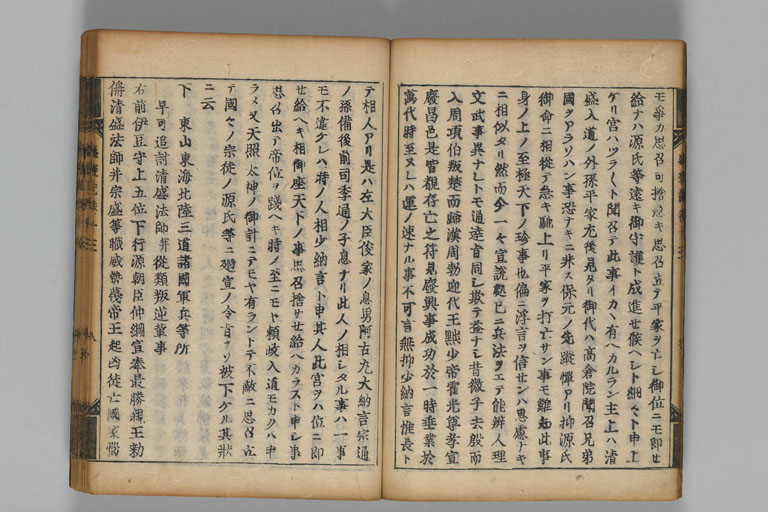 モ爭カ思召可捨ヘキ思召立テ平家ヲ亡シ御位ニモ即せ
給ナハ源氏等遠キ御守護ト成進せ候ヘシト細々ト申上
ケリ宮ハツク〱ト聞召テ此事イカヽ有ヘカルラン主上ハ清
盛入道ノ外孫平家尤後見タリ御代ハ高倉院聞召兄弟
國ヲアラソハン事恐ナキニ非ス保元ノ先蹤憚アリ抑源氏
御命ニ相從テ急キ馳上リ平家ヲ打亡サン事モ難知此事
身ノ上ノ至極天下ノ珍事也偏ニ浮言ヲ信せンハ思慮ナキ
ニ相似タリ然而今一々宣説
文武事異ナレトモ通達旨同シ歟テ昔微子去殷而
入周項伯叛楚而歸漢周勃迎代王黜少帝霍光尊孝宣
廢昌邑是皆観存亡之符見廢興事成功於一時垂業於
萬代時至ヌレハ運ノ速ナル事不可言無抑少納言惟長ト
テ相人アリ是ハ左大臣俊家ノ息男阿古丸大納言宗通
ノ孫備後前司季通ノ子息ナリ此人ノ相シタル事ハ一事
モ不違クレハ時ノ人相少納言ト申其人此宮ヲハ位ニ即
せ給ヘキ相御座天下ノ事思召捨サせ給ヘカラスト申シ事
思召出テ帝位ヲ踐ヘキ時ノ至ニモヤ頼政入道モカクハ申
ラメ又天照太神ノ御計ニテモヤ有ラントテ不敵ニ思召立
テ國々ノ宗徒ノ源氏等ニ廻宣ノ令旨ヲソ被下ケル其状
ニ云
下 東山東海北陸三道諸國軍兵等所
早可追討清盛法師并從類叛逆輩事
右前伊豆守上五位下行源朝臣仲綱宣奉最勝親王勅
偁清盛法師并宗盛等職威勢蔑帝王起凶徒亡國家惱